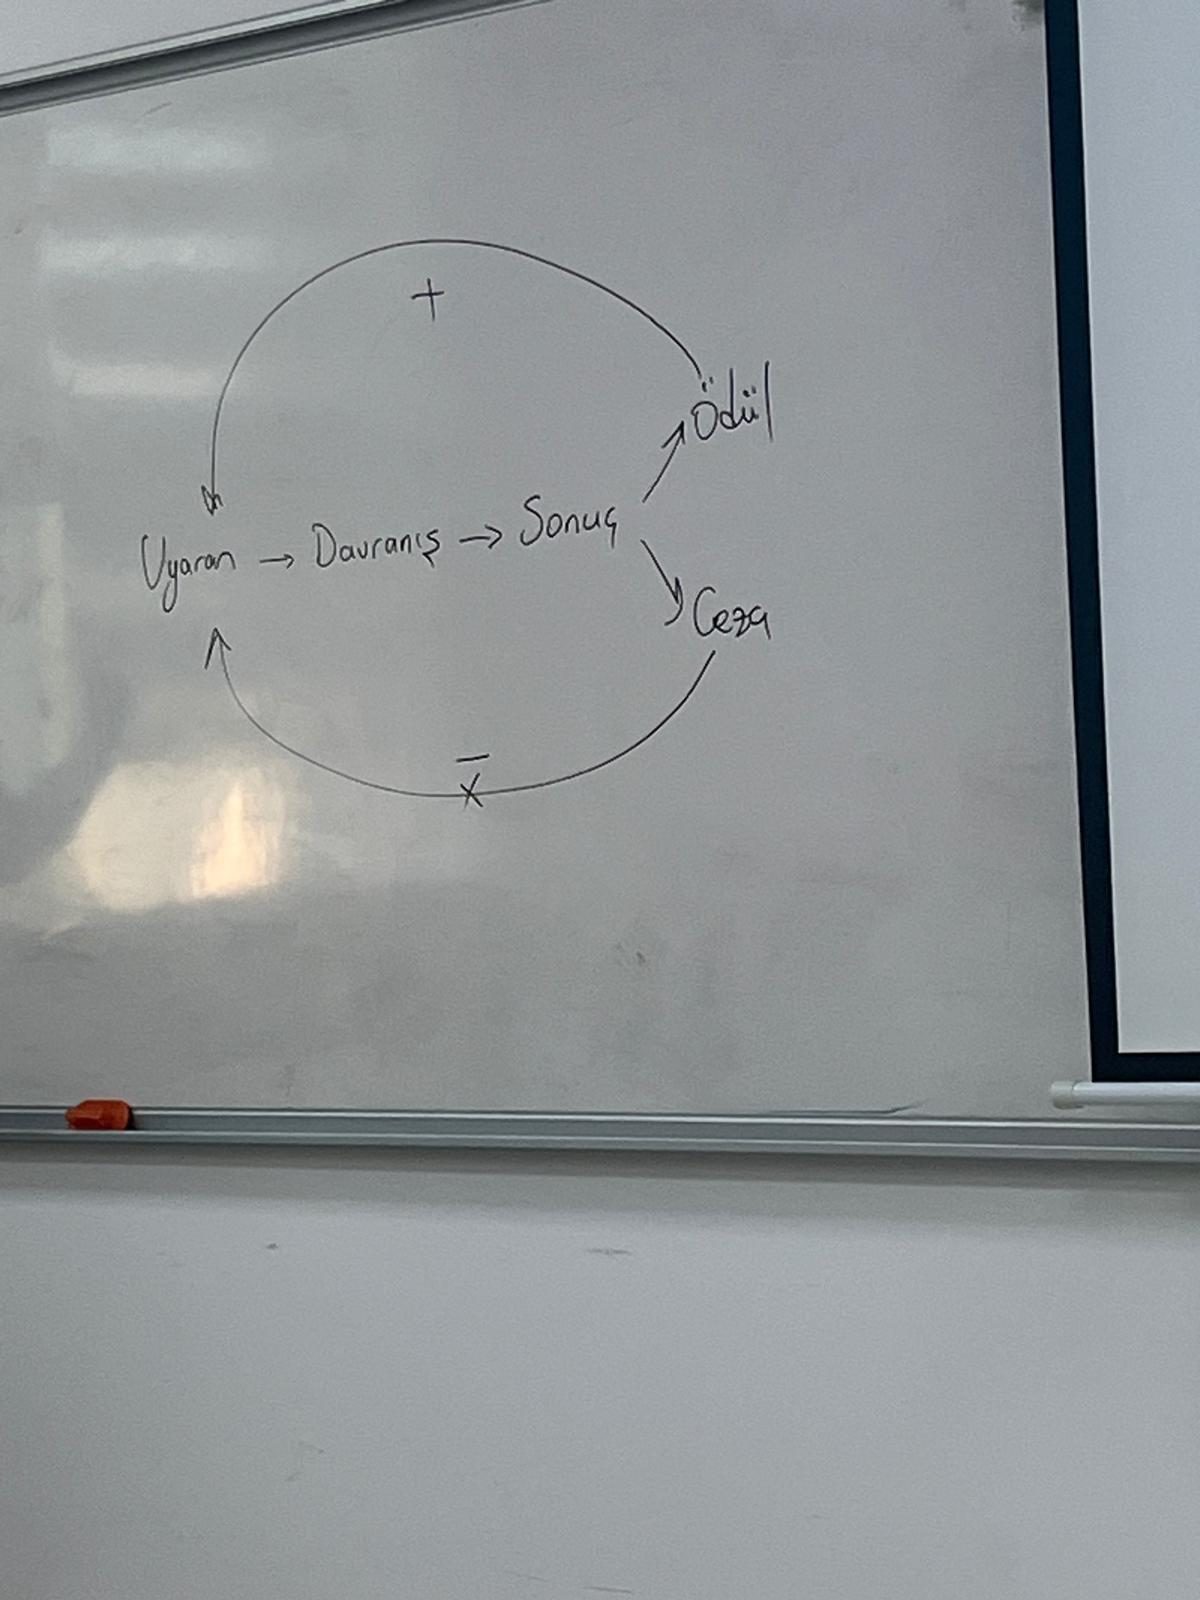 +
Ödül
Uyaran → Davranış → Sonuç
Ceza
-
x